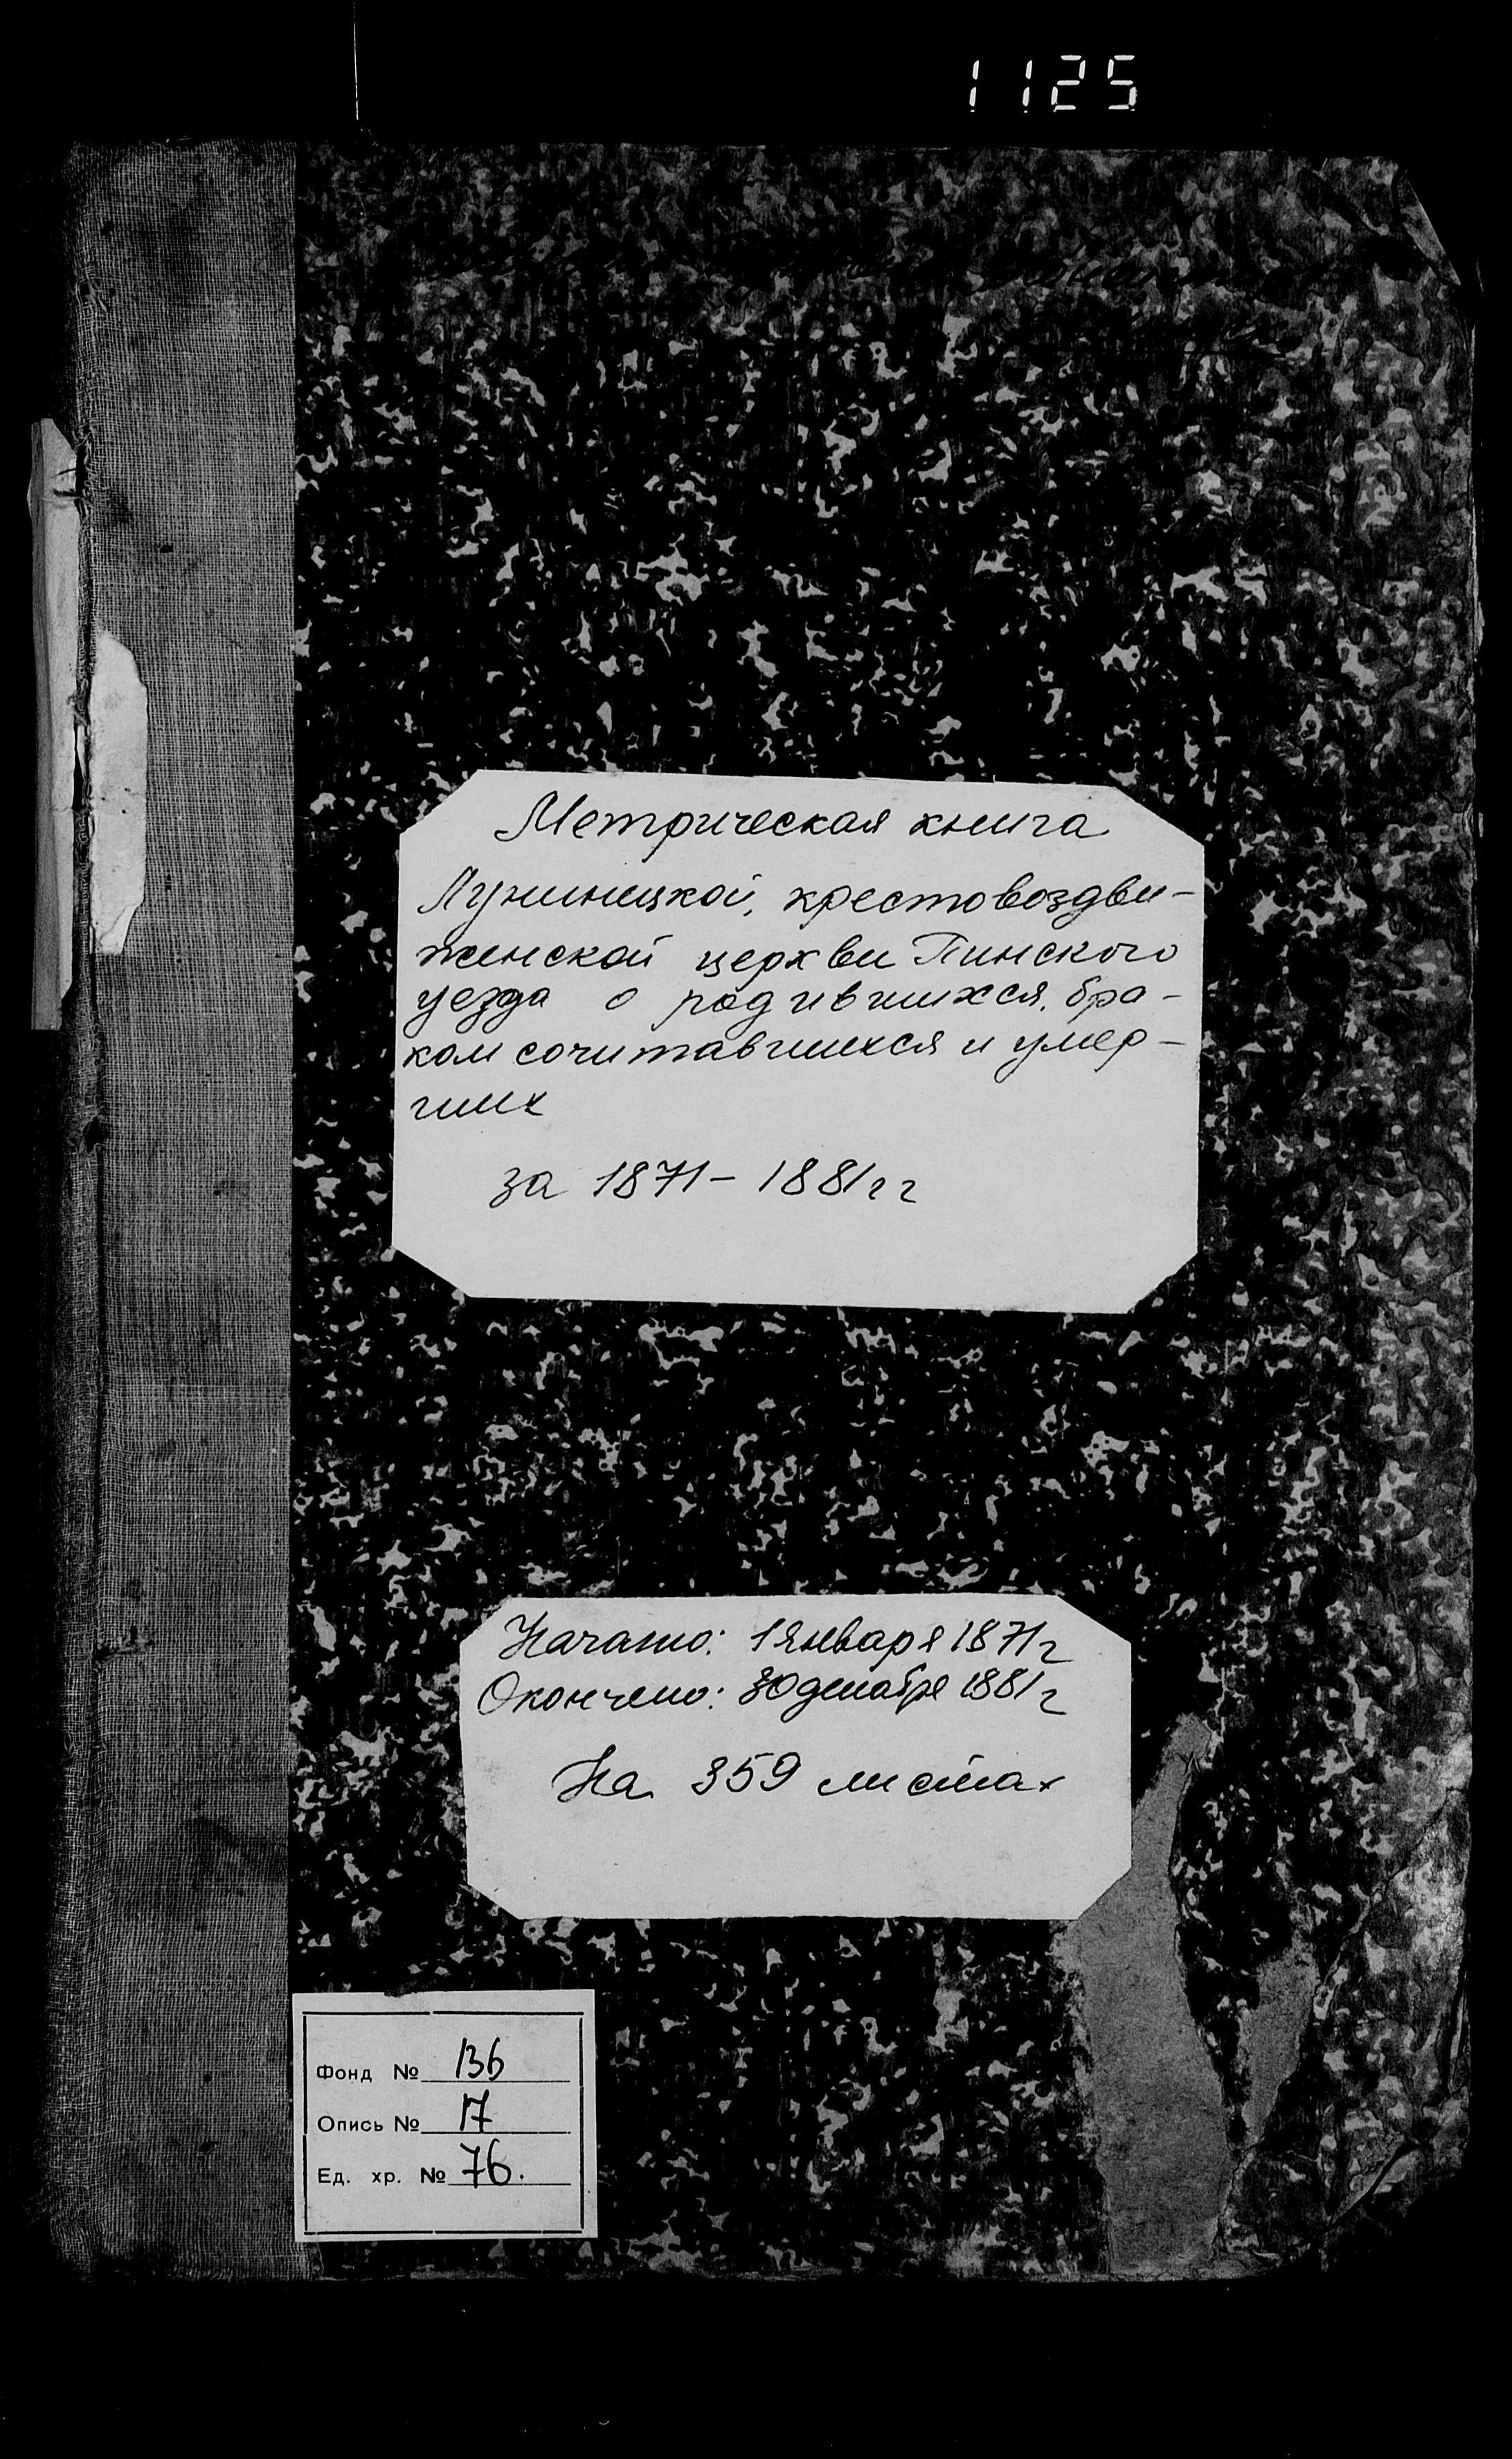 1125
Метрическая книга
Лунинецкой, крестовоздви-
женской церкви Пинского
уезда о родившихся, бра-
ком сочитавшихся и умер-
ших
за 1871 - 1881 гг
Начато: 1 января 1871 г
Окончено: 30 декабря 1881 г
На 359 листах
Фонд № 136
Опись № 17
Ед. хр. № 76.